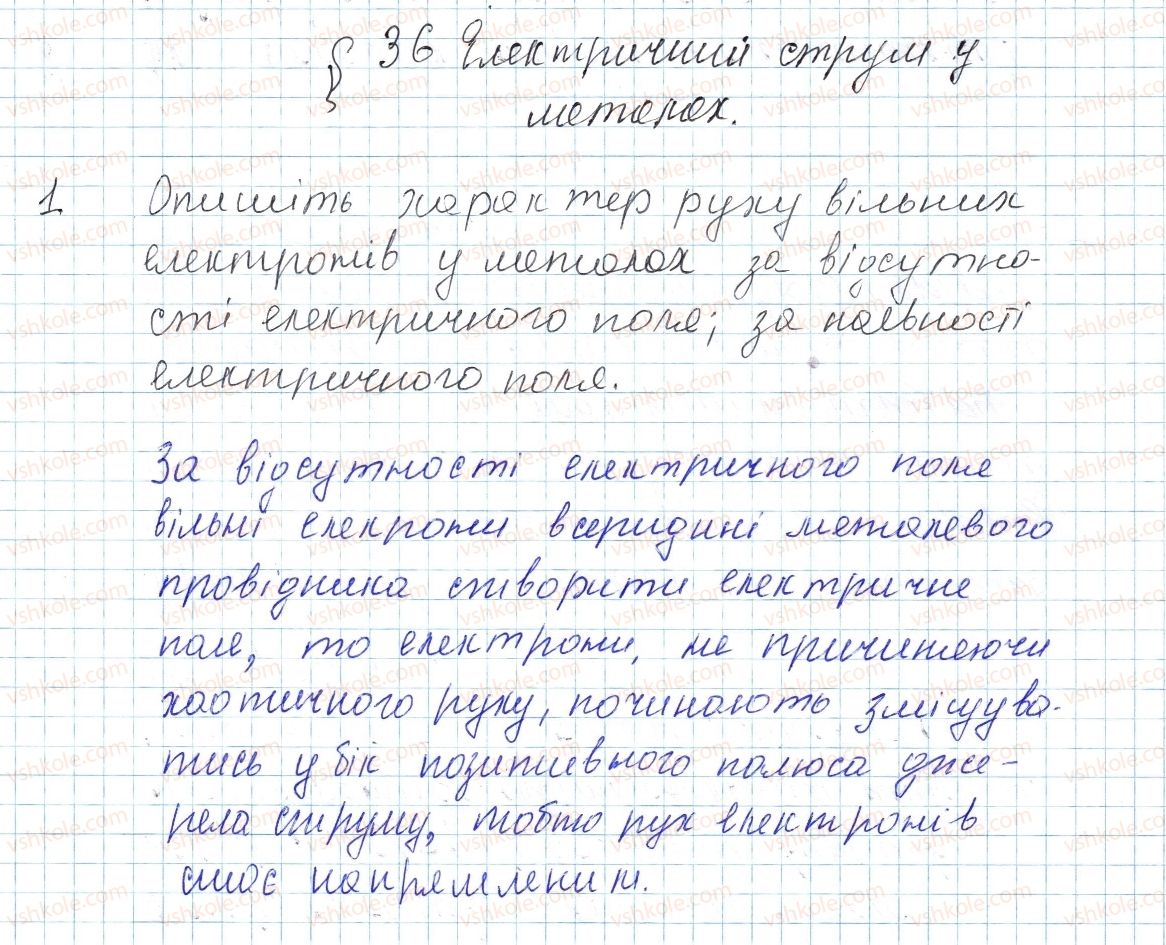 § 36 Електричний струм у
металах.
1 Опишіть характер руху вільних
електронів у металах за відсутно-
сті електричного поля; за наявності
електричного поля.
За відсутності електричного поля
вільні елекрони всередині металевого
провідника створити електричне
поле, то електрони, не причиняючи
хаотичного руху, починають зміщува-
тись у бік позитивного полюса дже-
рела струму, тобто рух електронів
стає напрямленим.